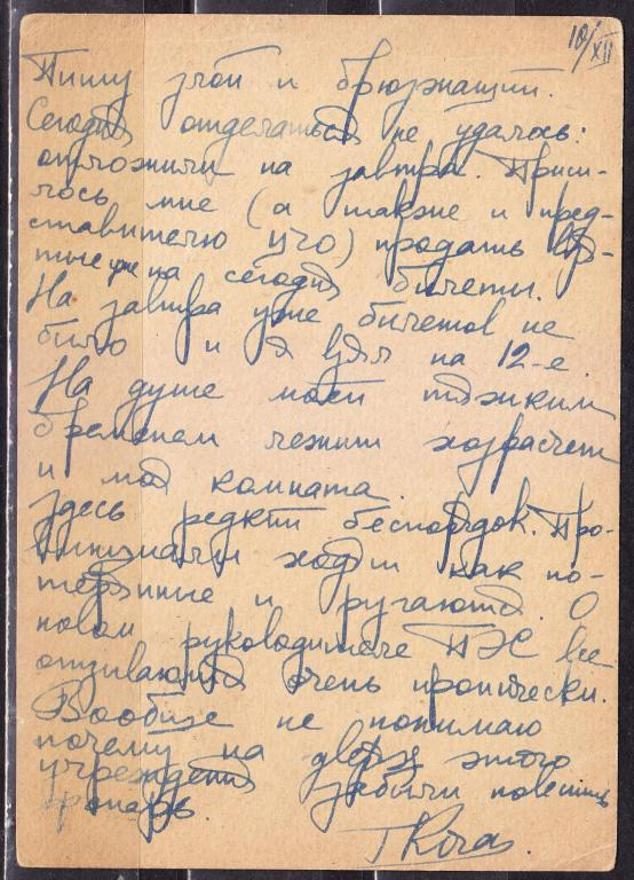 10/XII
Пишу злой и брюзжащий.
Сегодня отделаться не удалось:
отложили на завтра. Приш-
лось мне (а также и пред-
ставителю УЧО) продать взя-
тые уже на сегодня билеты.
На завтра уже билетов не
было и я взял на 12-е.
На душе моей тяжким
бременем лежит хозрасчет
и моя комната.
Здесь редкий беспорядок. Про-
ходят как по-
терянные и ругаются. О
новом руководителе ПЭС все
отзываются очень иронически.
Вообще не понимаю
почему на дверях этого
учреждения забыли повесить
фонарь.